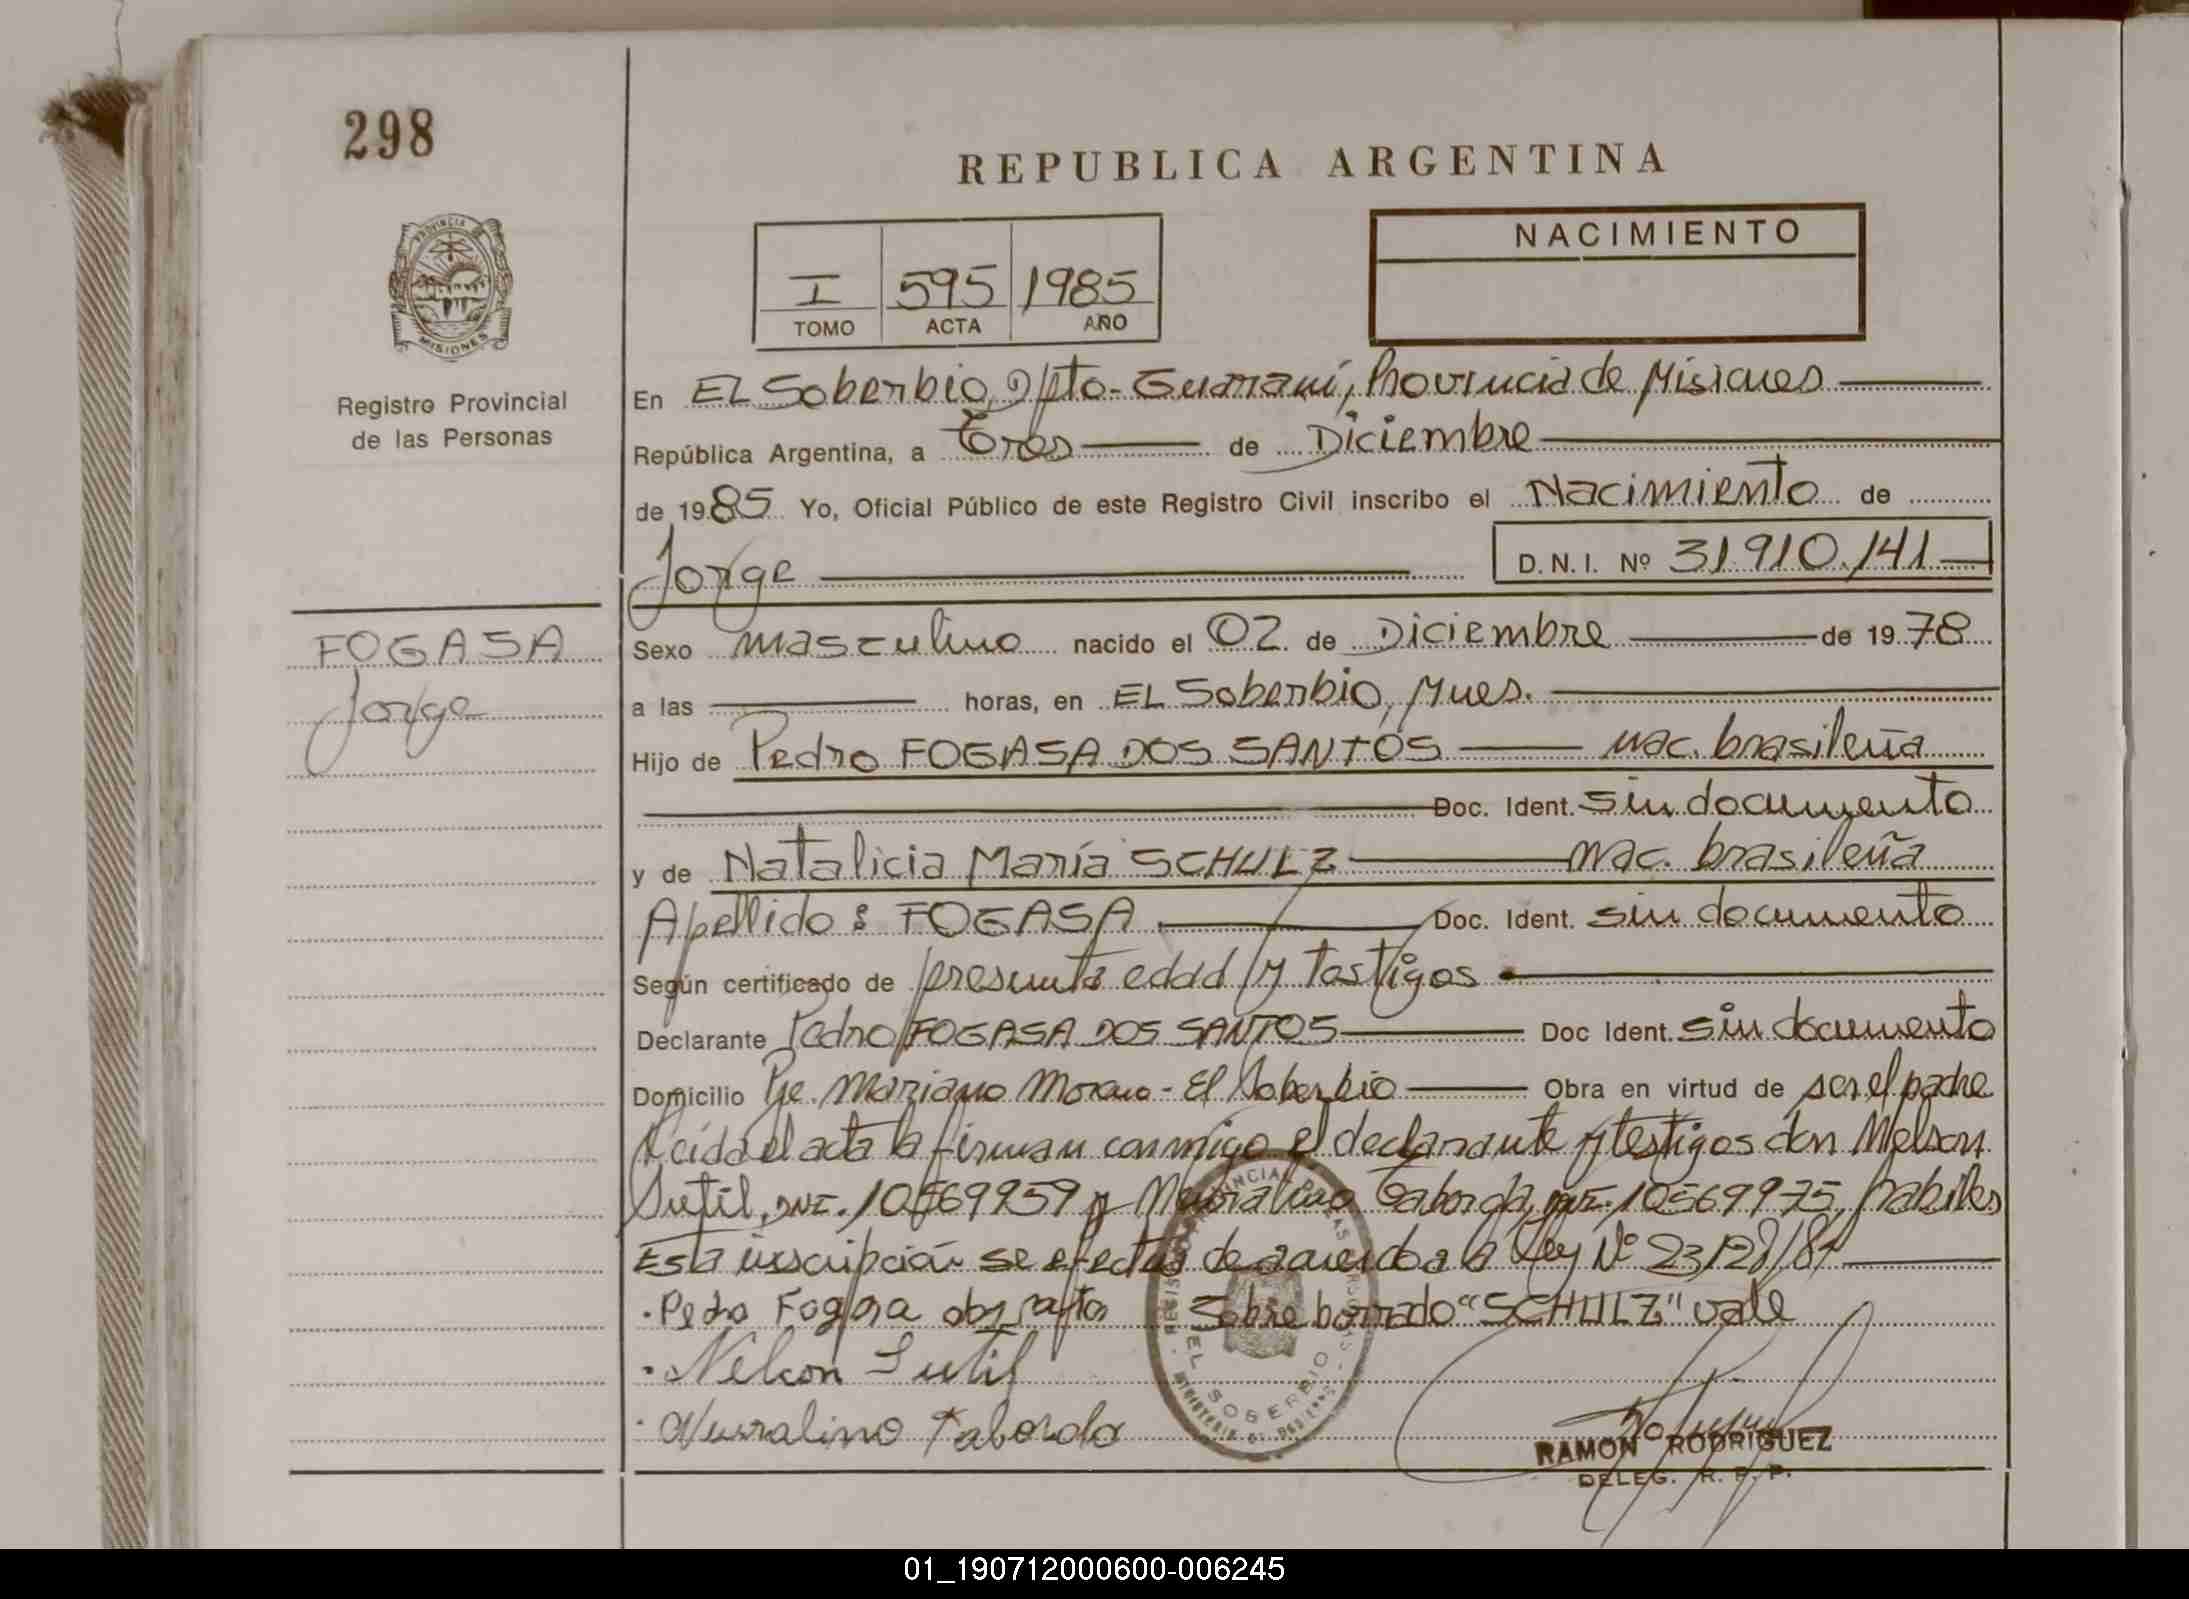 298
REPUBLICA ARGENTINA
PROVINCIA DE
MISIONES
Registro Provincial
de las Personas
I 595 1985
TOMO ACTA AÑO
NACIMIENTO
En El Soberbio, Dpto-Guaraní, Provincia de Misiones
República Argentina, a Tres de Diciembre
de 1985 Yo, Oficial Público de este Registro Civil inscribo el Nacimiento de
Jorge D.N.I. Nº 31.910.141
FOGASA
Jorge
Sexo masculino nacido el 02 de Diciembre de 1978
a las horas, en El Soberbio, Mnes.
Hijo de Pedro FOGASA DOS SANTOS nac. brasileña
Doc. Ident. sin documento
y de Natalicia María SCHULZ nac. brasileña
Apellido: FOGASA Doc. Ident. sin documento
Según certificado de presunta edad y testigos
Declarante Pedro FOGASA DOS SANTOS Doc Ident. sin documento
Domicilio Pje. Mariano Moreno - El Soberbio Obra en virtud de ser el padre
Leída el acta la firman conmigo el declarante y testigos don Nelson
Sutil, DNI. 10569959 y Neuralino Taborda, DNI. 10569975, habiles
Esta inscripción se efectua de acuerdo a la Ley Nº 23128/84
Pedro Fogasa dos santos Sobre borrado "SCHULZ" vale
Nelson Sutil
Neuralino Taborda
EL SOBERBIO
RAMON RODRIGUEZ
DELEG. R. P. P.
01_190712000600-006245